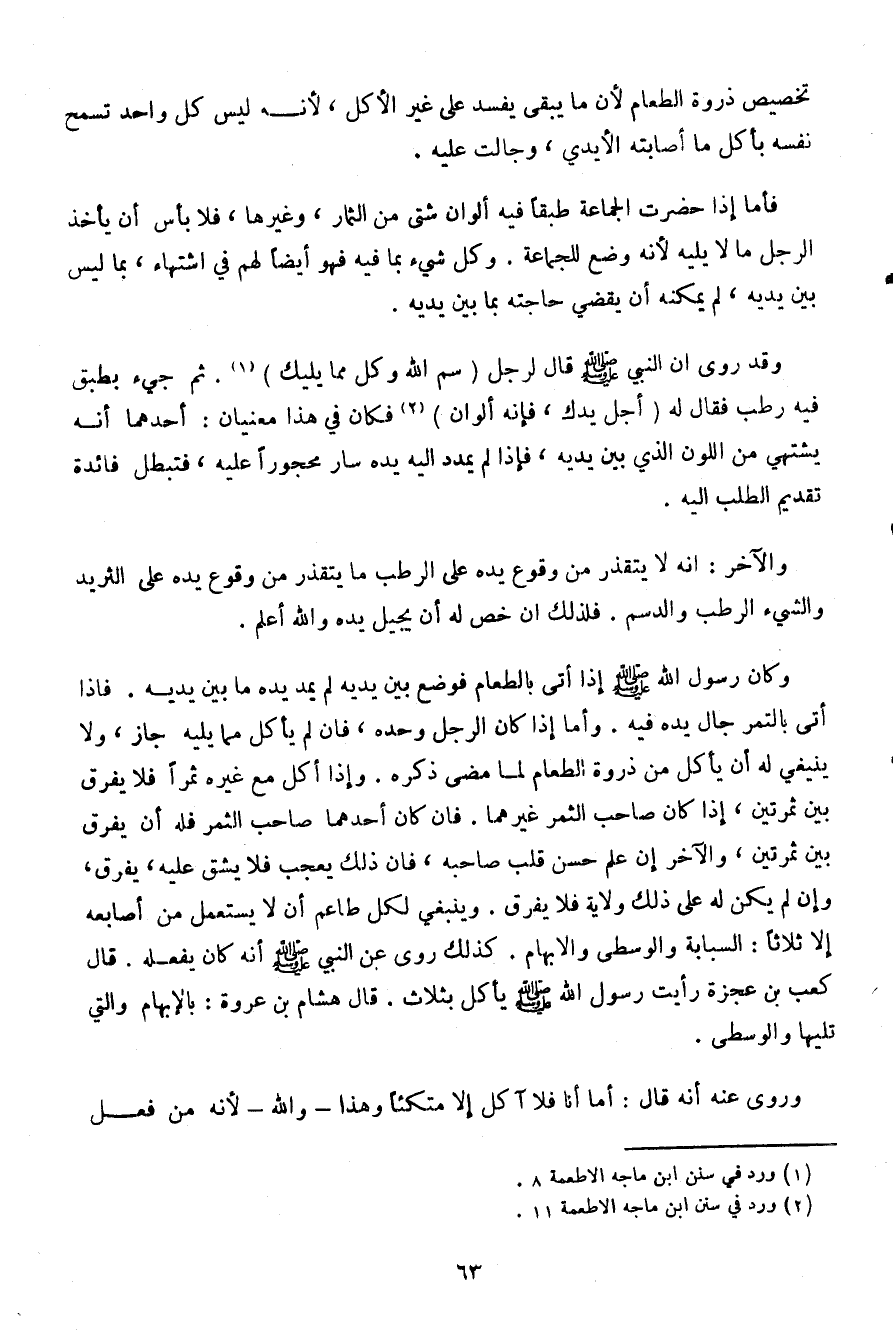 تخصيص ذروة الطعام لأن ما يبقى يفسد على غير الأكل ، لأنـــه ليس كل واحد تسمح
نفسه بأكل ما أصابته الأيدي ، وجالت عليه .
فأما إذا حضرت الجماعة طبقاً فيه ألوان شتى من الثمار ، وغيرها ، فلا بأس أن يأخذ
الرجل ما لا يليه لأنه وضع للجماعة . وكل شيء بما فيه فهو أيضاً لهم في اشتهاء ، بما ليس
بين يديه ، لم يمكنه أن يقضي حاجته بما بين يديه .
وقد روى ان النبي ﷺ قال لرجل ( سم الله وكل مما يليك ) (١) . ثم جيء بطبق
فيه رطب فقال له ( أجل يدك ، فإنه ألوان ) (٢) فكان في هذا معنيان : أحدهما أنــه
يشتهي من اللون الذي بين يديه ، فإذا لم يمدد اليه يده سار محجوراً عليه ، فتبطل فائدة
تقديم الطلب اليه .
والآخر : انه لا يتقذر من وقوع يده على الرطب ما يتقذر من وقوع يده على الثريد
والشيء الرطب والدسم . فلذلك ان خص له أن يجيل يده والله أعلم .
وكان رسول الله ﷺ إذا أتى بالطعام فوضع بين يديه لم يمد يده ما بين يديــه . فاذا
أتى بالتمر جال يده فيه . وأما إذا كان الرجل وحده ، فان لم يأكل مما يليه جاز ، ولا
ينبغي له أن يأكل من ذروة الطعام لمـا مضى ذكره . وإذا أكل مع غيره ثمراً فلا يفرق
بين ثمرتين ، إذا كان صاحب الثمر غيرهما . فان كان أحدهما صاحب الثمر فله أن يفرق
بين ثمرتين ، والآخر إن علم حسن قلب صاحبه ، فان ذلك يعجب فلا يشق عليه، يفرق،
وإن لم يكن له على ذلك ولاية فلا يفرق . وينبغي لكل طاعم أن لا يستعمل من أصابعه
إلا ثلاثاً : السبابة والوسطى والابهام . كذلك روى عن النبي ﷺ أنه كان يفعـله . قال
كعب بن عجزة رأيت رسول الله ﷺ يأكل بثلاث . قال هشام بن عروة : بالإبهام والتي
تليها والوسطى .
وروى عنه أنه قال : أما أنا فلا آكل إلا متكئاً وهذا – والله – لأنه من فعـــل
(١) ورد في سنن ابن ماجه الاطعمة ٨ .
(٢) ورد في سنن ابن ماجه الاطعمة ١١ .
٦٣